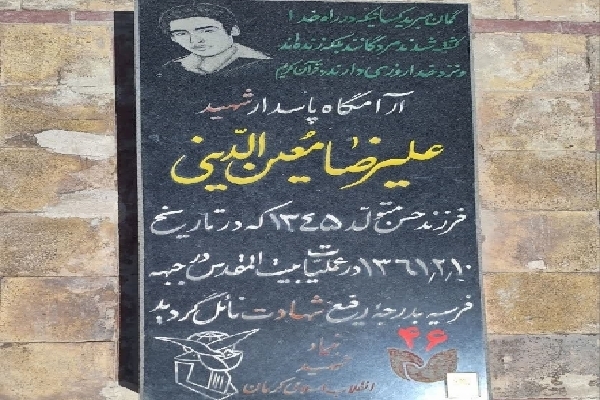 گمان مبرید کسانیکه در راه خدا
کشته شدند مردگانند بلکه زنده‌اند
و نزد خدا روزی دارند قرآن کریم
آرامگاه پاسدار شهید
علیرضا معین الدینی
فرزند حسن متولد ۱۳۴۵ که در تاریخ
۱۳۶۱/۲/۱۰ در عملیات بیت المقدس در جبهه
فرسیه بدرجه رفیع شهادت نائل گردید
بنیاد
شهید
انقلاب اسلامی کرمان
۴۶